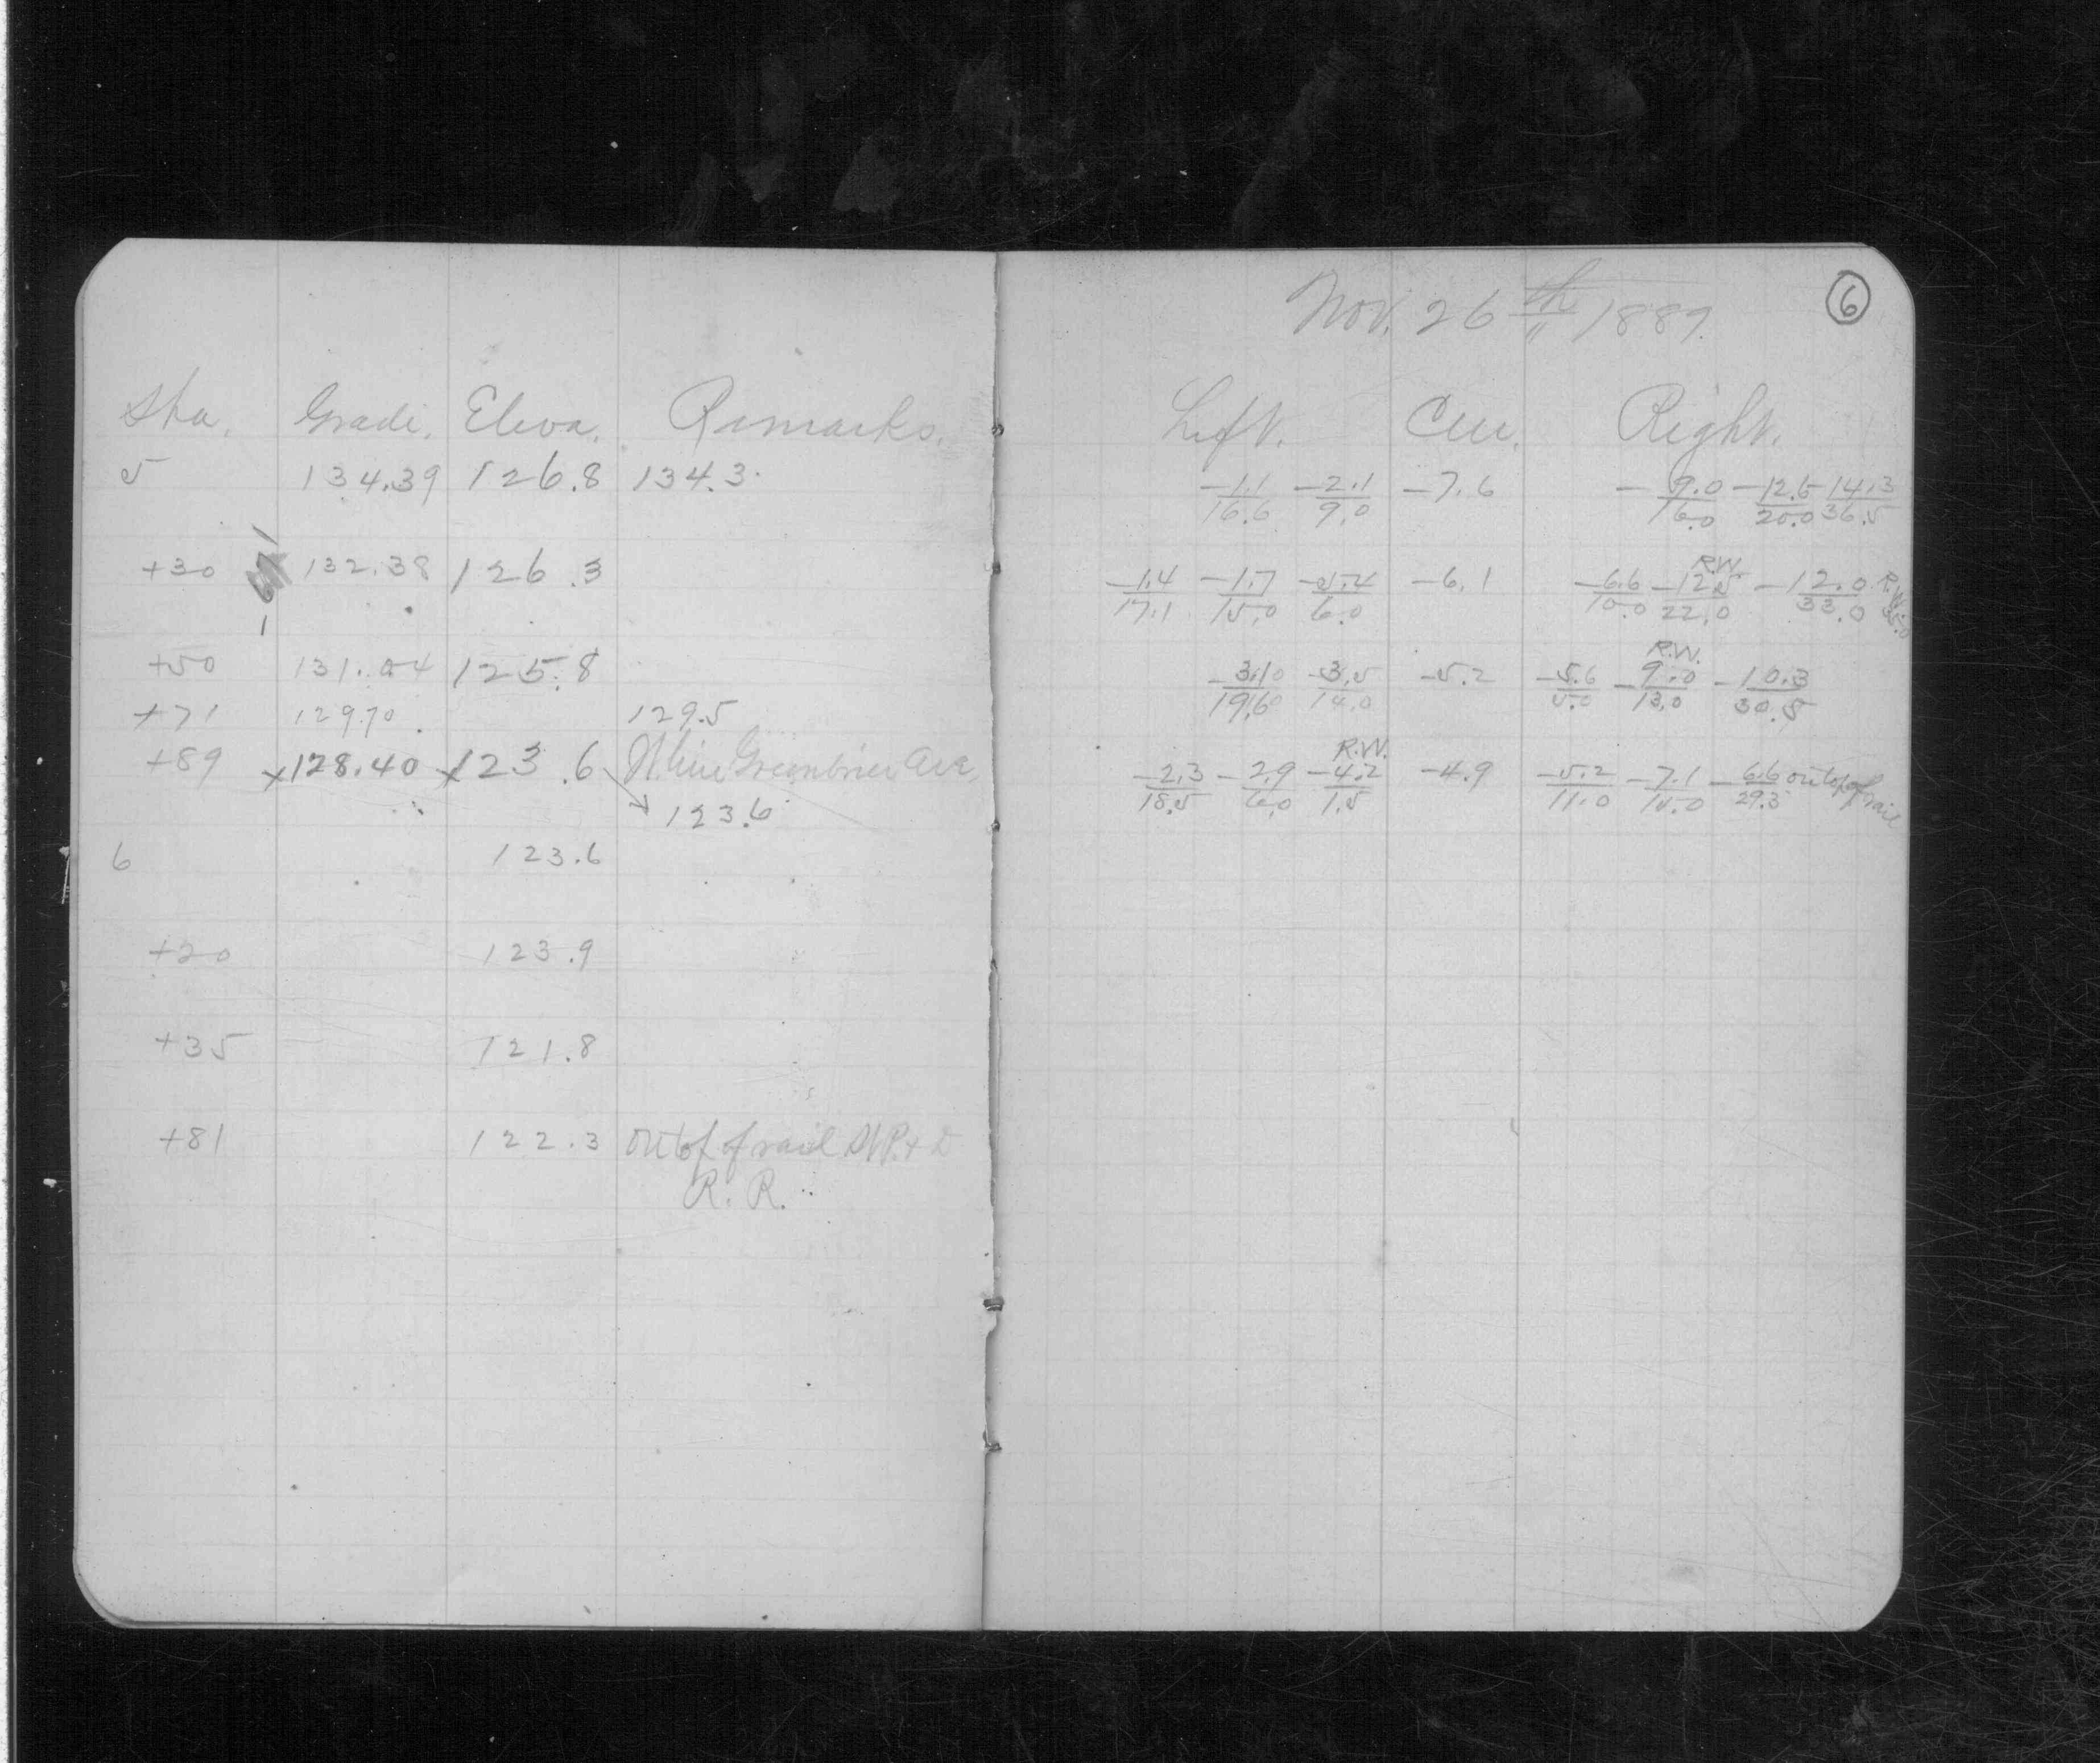 Sta. Grade. Eleva. Remarks.
5 134.39 126.8 134.3
+30 132.38 126.3
+50 131.04 125.8
+71 129.70 129.5
+89 128.40 123.6 N. line Greenbrier Ave,
123.6
6 123.6
+20 123.9
+35 121.8
+81 122.3 on top of rail St. P. & D
R. R.
Nov. 26th 1889.
6
Left. Cen. Right.
-1.1 -2.1 -7.6 -9.0 -12.6 -14.3
16.6 9.0 6.0 25.0 36.5
R.W.
-1.4 -1.7 -5.4 -6.1 -6.6 -12.5 -12.0 R.W.
17.1 15.0 6.0 10.0 22.0 33.0
R.W.
-3.10 -3.5 -5.2 -5.6 -9.0 -10.3
19.6 14.0 5.0 13.0 30.5
R.W.
-2.3 -2.9 -4.2 -4.9 -5.2 -7.1 -6.6 on top of rail
18.5 6.0 1.5 11.0 15.0 29.3